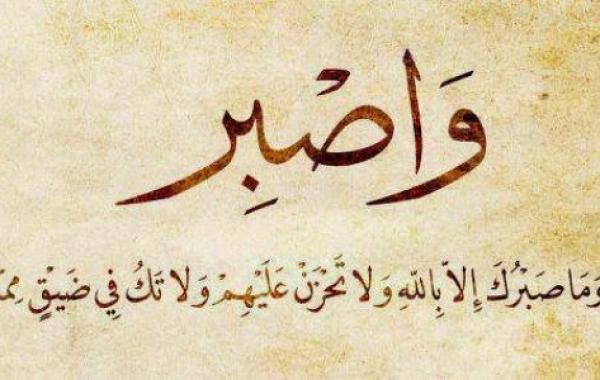 وَاصْبِر
وَمَا صَبْرُكَ إِلاَّ بِاللهِ وَلاَ تَحْزَنْ عَلَيْهِمْ وَلاَ تَكُ فِي ضَيْقٍ